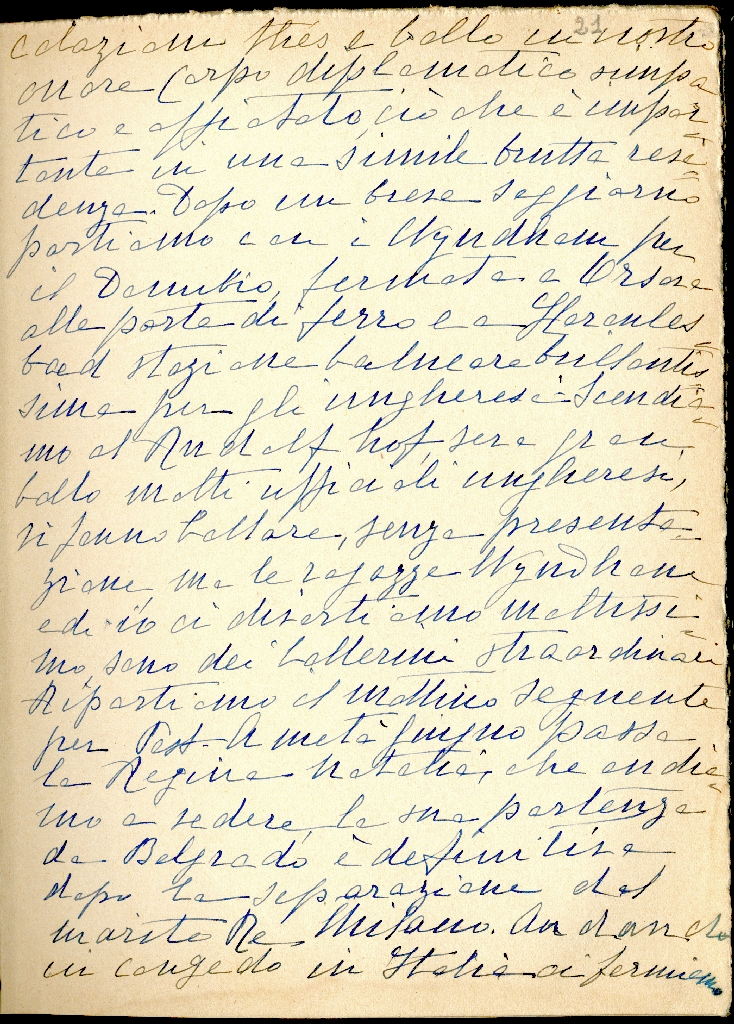 21
colazioni thés e ballo in nostro
onore Corpo diplomatico simpa
tico e affiatato, ciò che è impor=
tante in una simile brutta resi=
denza. Dopo un breve soggiorno
partiamo con i Wyndham per
il Danubio, fermata a Orsova
alle porte di ferro e a Hercules=
bad stazione balneare brillantis=
sima per gli ungheresi - Scendia=
mo al Rudolf hof, sera gran
ballo molti ufficiali ungheresi,
si fanno ballare, senza presenta=
zione, ma le ragazze Wyndham
ed io ci divertiamo moltissi=
mo, sono dei ballerini straordinari
Ripartiamo il mattino seguente
per Pest - A metà giugno passa
la Regina Natalia, che andia=
mo a vedere, la sua partenza
da Belgrado è definitiva
dopo la separazione dal
marito Re Milano. Andando
in congedo in Italia ci fermiamo